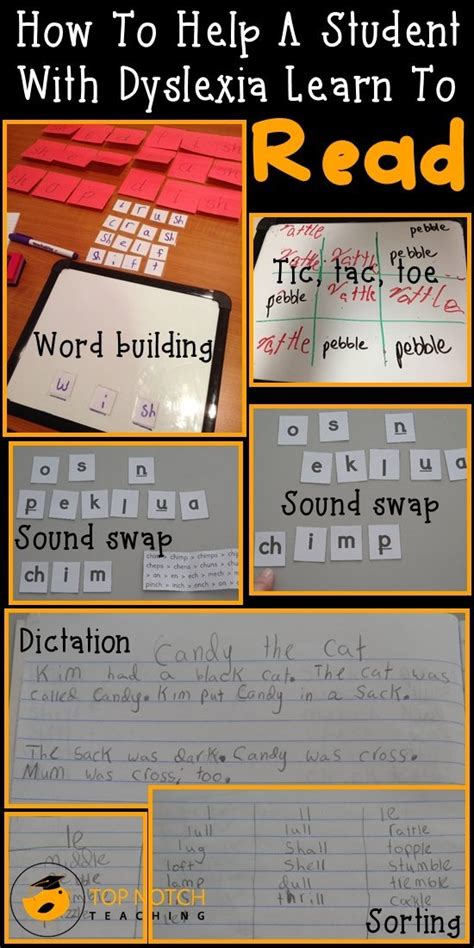 How To Help A Student
With Dyslexia Learn To
Read
sh o p d i sh
c r a sh
sh e l f
sh i f t
Word building
w i sh
rattle pebble
rattle rattle pebble
Tic, tac, toe
pebble rattle rattle
rattle pebble pebble
o s n
p e k l u a
Sound swap
ch i m
chimp > chimps > chip
o s n
e k l u a
Sound swap
ch i m p
Dictation
Candy the cat
Kim had a black cat. The cat was
called Candy. Kim put Candy in a sack.
The sack was dark. Candy was cross.
Mum was cross, too.
le
middle
l ll le
lull lull rattle
lug shall topple
loft shell stumble
lamp dull tremble
thrill cackle
Sorting
TOP NOTCH
TEACHING